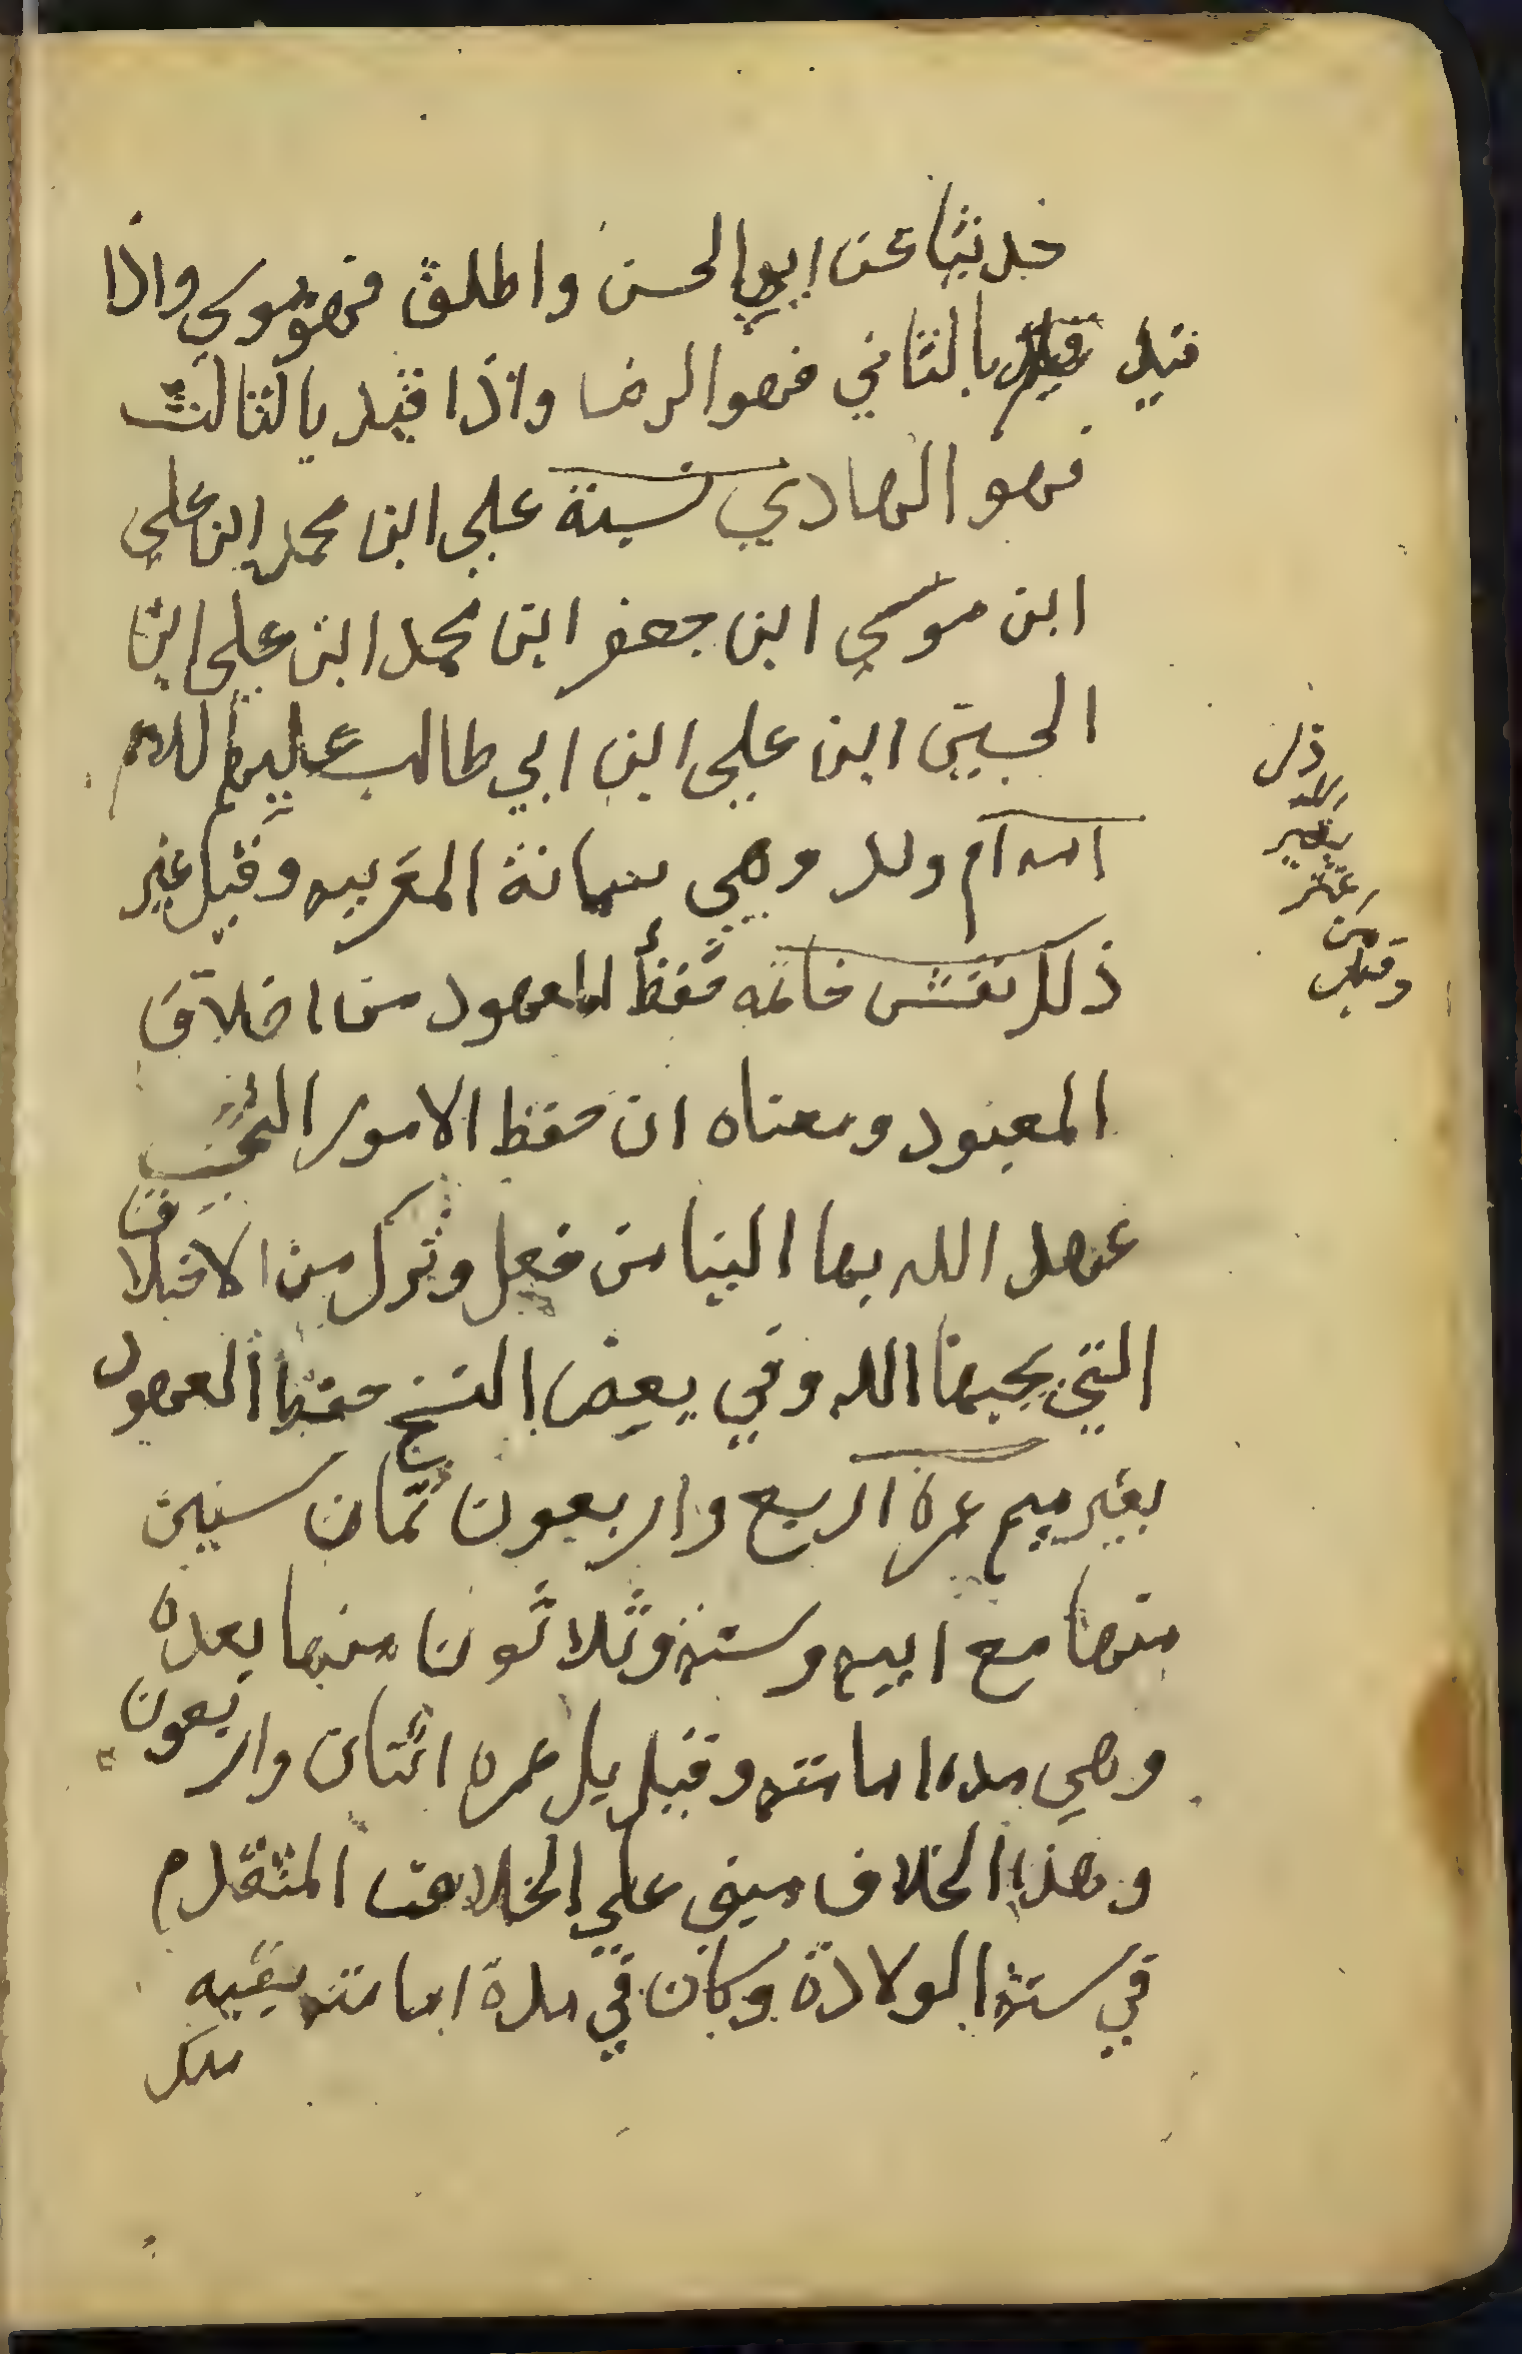 حديثا عن ابي الحسن واطلق فهو موسي واذا
قيد بالثاني فهو الرضا واذا قيد بالثالث
فهو الهادي نسبة علي ابن محمد ابن علي
ابن موسي ابن جعفر ابن محمد ابن علي ابن
الحسين ابن علي ابن ابي طالب عليهم
امه ام ولد وهي سمانة المغربيه وقيل غير
ذلك نقش خاتمه حفظ المعهود من اخلاق
المعبود ومعناه ان حفظ الامور التي
عهد الله بها الينا من فعل وترك من الاخلاق
التي يحبها الله وفي بعض النسخ حفظ العهود
بغير ميم عمره اربع واربعون ثمان سنين
منها مع ابيه وستة وثلاثون منها بعده
وهي مده امامته وقيل بل عمره اثنتان واربعون
وهذا الخلاف مبني علي الخلاف المتقدم
في سنة الولادة وكان في مدة امامته بقيه
ملك
وقيل
من
غير